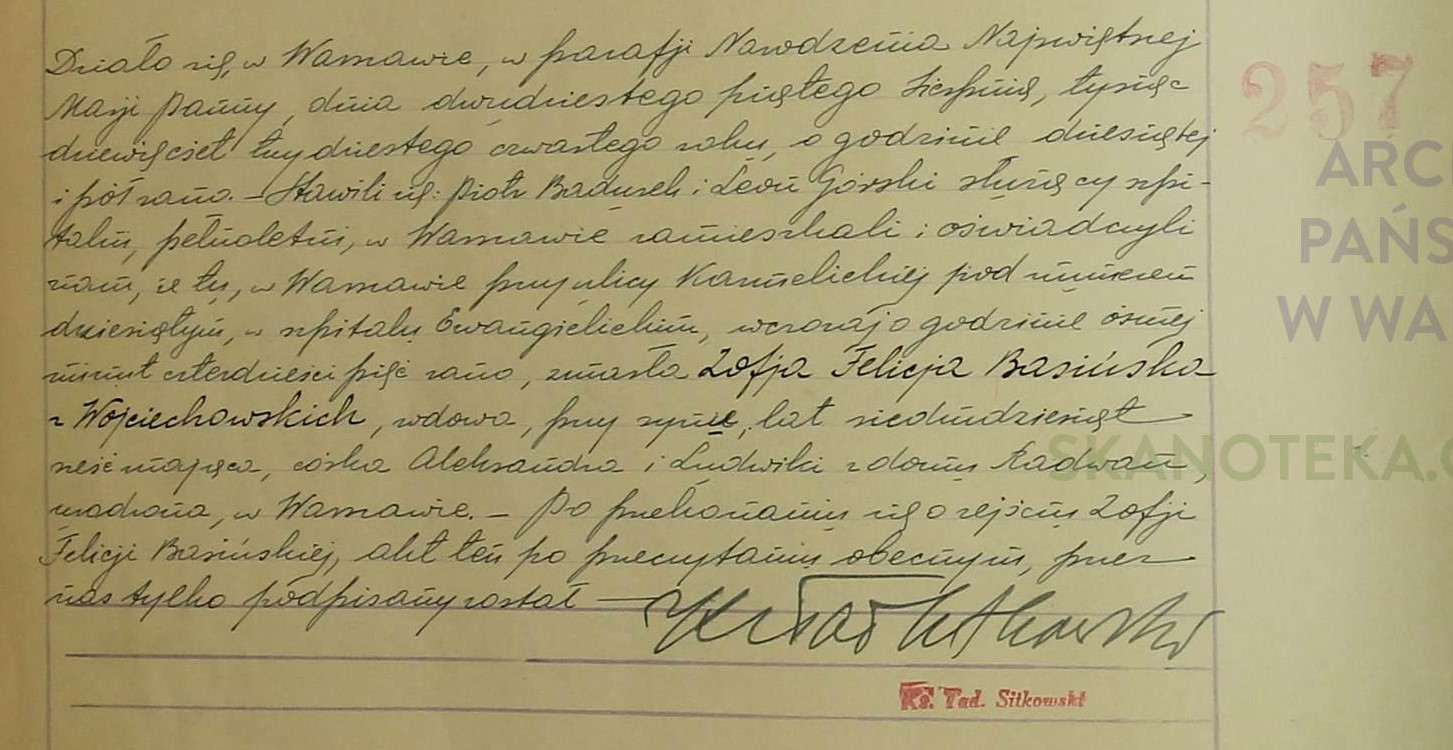 Działo się, w Warszawie, w parafji Narodzenia Najświętszej
Maryi Panny, dnia dwudziestego piątego Sierpnia, tysiąc
dziewięćset trzydziestego czwartego roku, o godzinie dziesiątej
i pół rano. – Stawili się: Piotr Badurek i Leon Górski służący szpi-
talni, pełnoletni, w Warszawie zamieszkali i oświadczyli
nam, że tu, w Warszawie przy ulicy Karmelickiej pod numerem
dziesiątym, w szpitalu Ewangielickim, wczoraj o godzinie ósmej
minut czterdzieści pięć rano, zmarła Zofja Felicja Basińska
z Wojciechowskich, wdowa, przy synie, lat siedmdziesiąt
sześć mająca, córka Aleksandra i Ludwiki z domu Radwan,
urodzona, w Warszawie. – Po przekonaniu się o zejściu Zofji
Felicji Basińskiej, akt ten po przeczytaniu obecnym, przez
nas tylko podpisany został —
Ks. Tad. Sitkowski
257
ARC
PAŃS
W WA
SKANOTEKA.